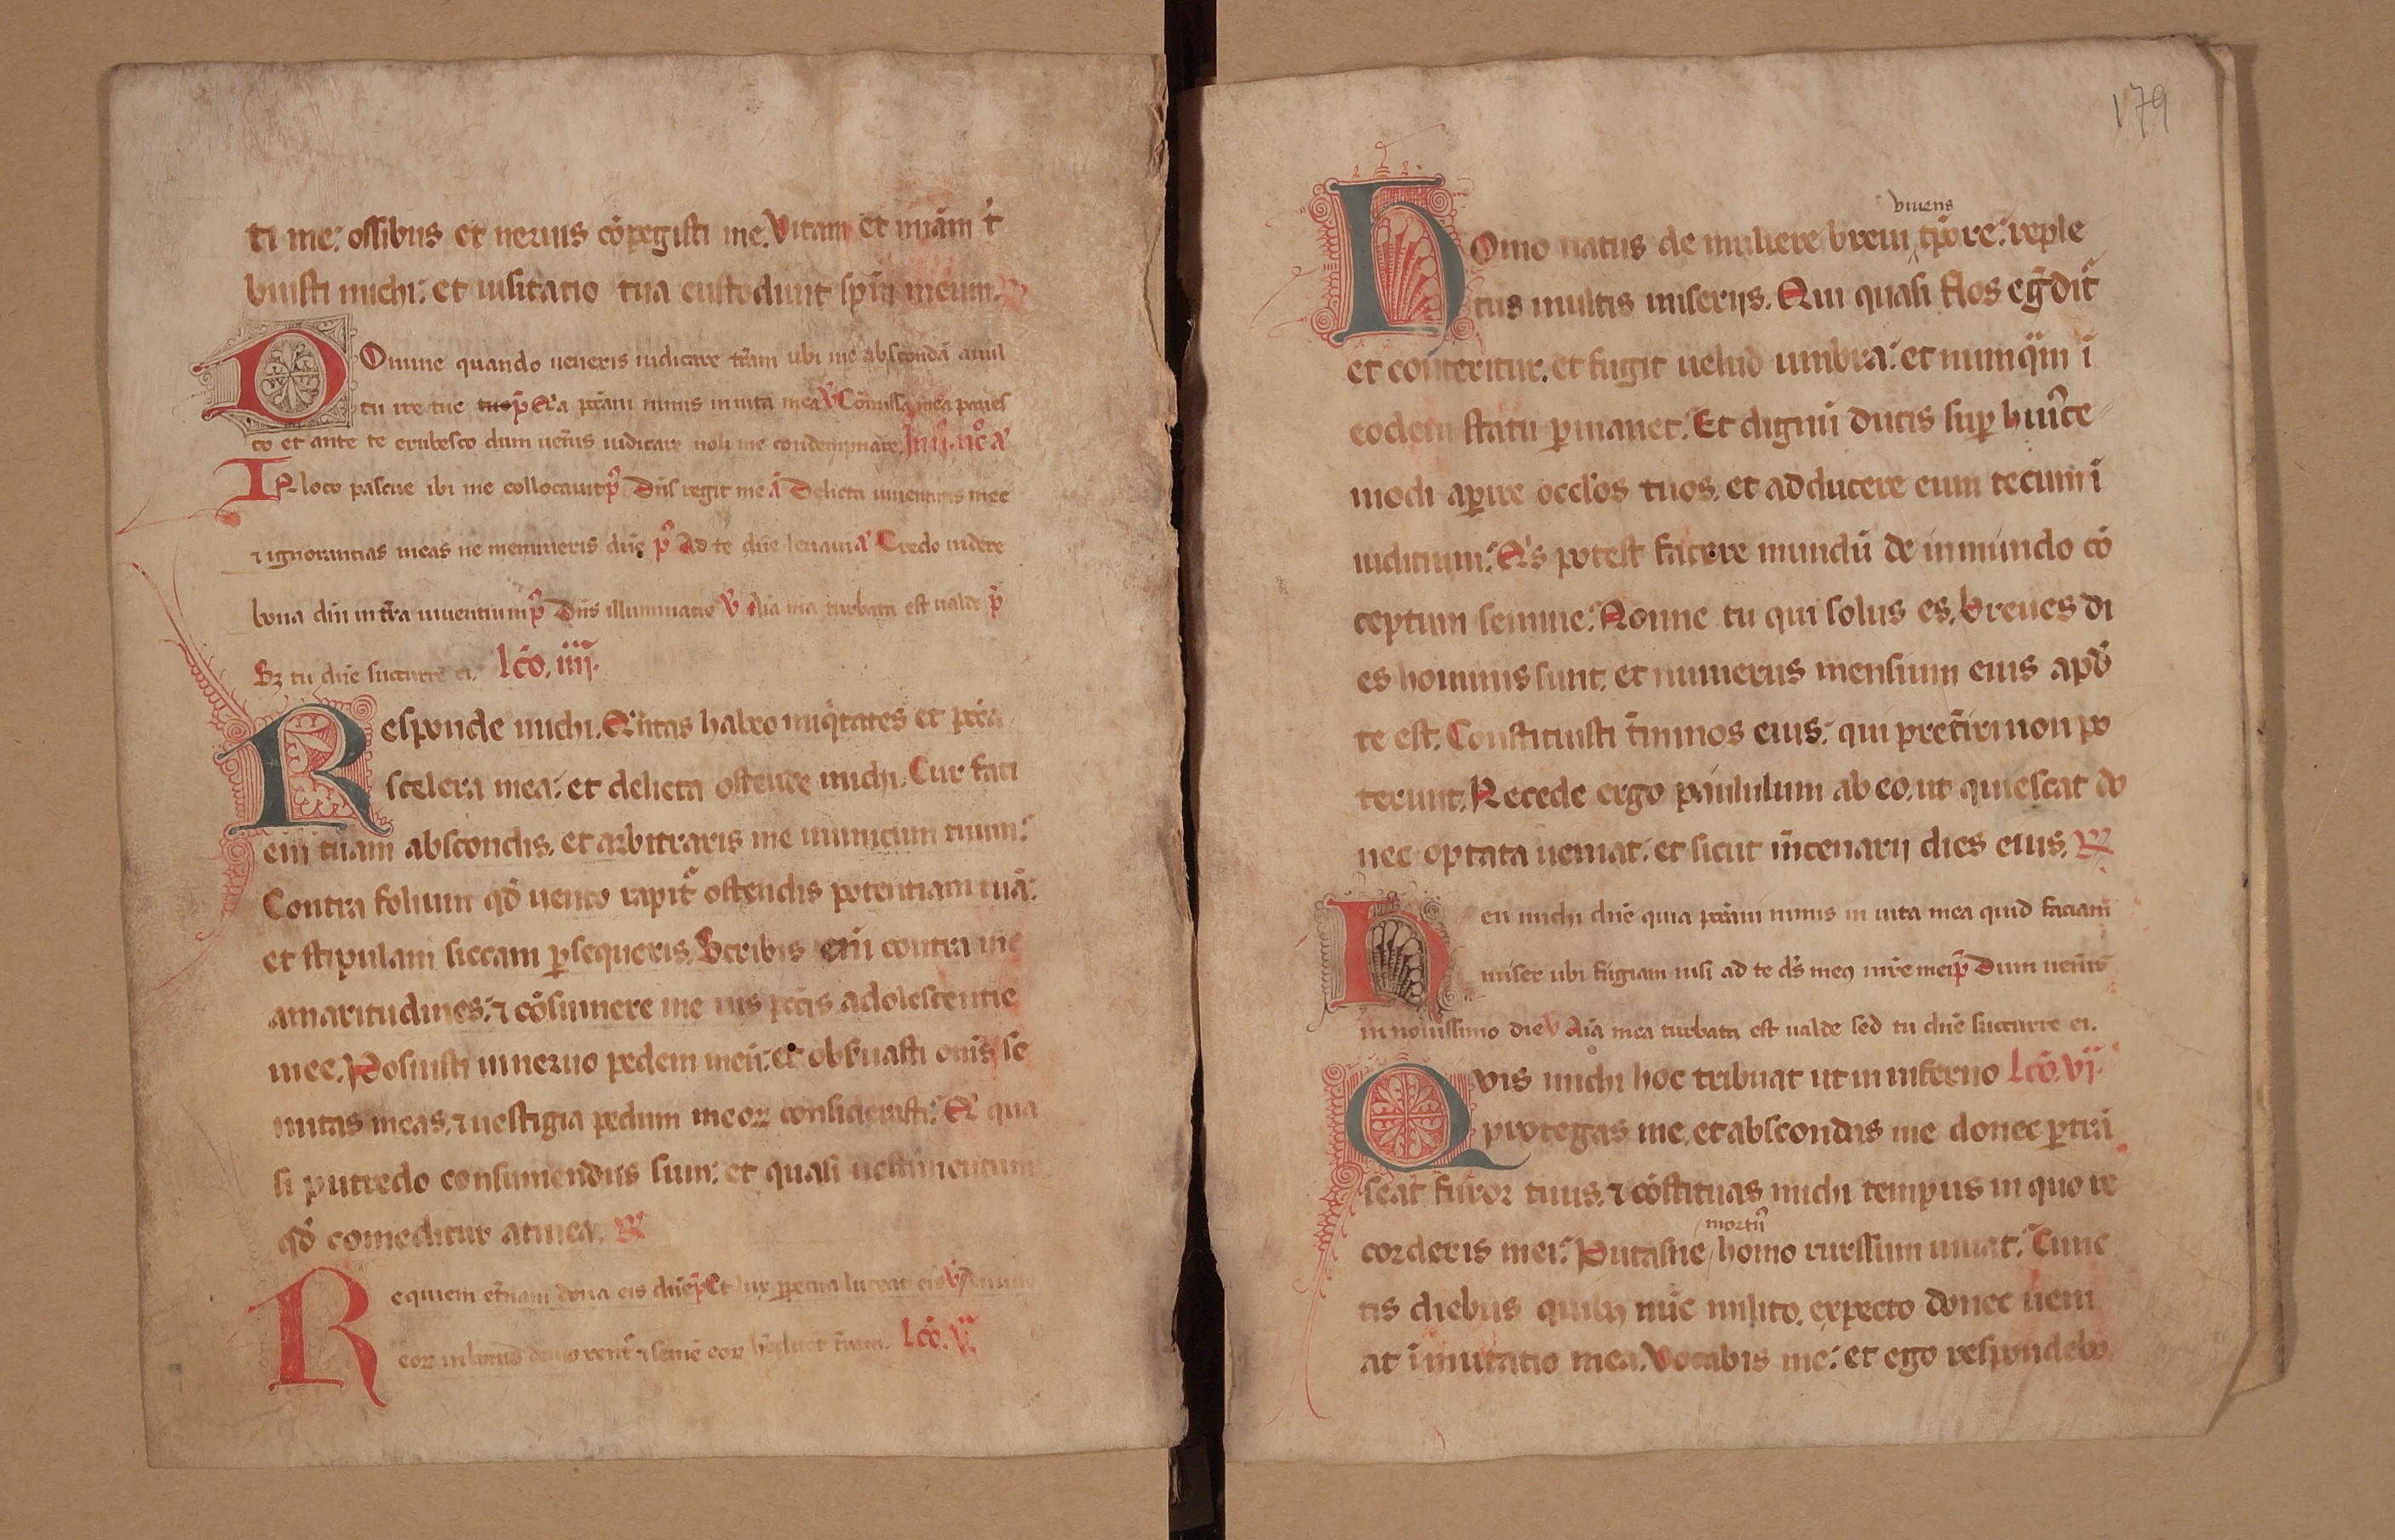 ti me: ossibus et neruis cōpegisti me. Vitam et mīam t͛
buisti michi: et uisitatio tua custodiuit sp̄m meum. R
Domine quando ueneris iudicare trām ubi me abscondā a uul
tu ire tue p̄ Q͛a pcc̄aui nimis in uita mea V̄ Cōmissa mea paues
co et ante te erubesco dum uen͛is iudicare noli me condempnare. In ij͛. nō. a͛
IN loco pascue ibi me collocauit p̄s Dn̄s regit me ā Delicta iuuentutis mee
⁊ ignorantias meas ne memineris dn̄e p̄s Ad te dn̄e leuaui a͛ Credo uidere
bona dn̄i in tr̄a uiuentium p̄s Dn̄s illuminatio V̄ Aīa mā turbata est ualde p̄
Sꝫ tu dn̄e succurre ei. lc̄o. iiij.
Responde michi. Q͛ntas habeo iniq͛tates et pcc̄a
scelera mea: et delicta ostende michi. Cur faci
em tuam abscondis. et arbitraris me inimicum tuum:
Contra folium qđ uento rapit͛ ostendis potentiam tuā:
et stipulam siccam ꝑsequeris. Scribis eni᷒ contra me
amaritudines: ⁊ cōsumere me uis pcc̄is adolescentie
mee. Posuisti in neruo pedem meū: et obs͛uasti om̄s se
mitas meas. ⁊ uestigia pedum meoꝝ considerasti: Q͛ qua
si putredo consumendus sum: et quasi uestimentum
qđ comeditur a tinea. R
Requiem et͛nam dona eis dn̄e p̄ Et lux ꝑpetua luceat eis V̄ Anime
eoꝝ in bonis demorent͛ ⁊ semē eoꝝ h͛editet t͛ram. lc̄o. V.
179
viuens
Homo natus de muliere breui tp̄ore: reple
tus multis miserijs. Qui quasi flos eg͛dit͛
et conteritur. et fugit uelud umbra: et numq̄m ī
eodem statu ꝑmanet. Et dignū ducis suꝑ huiꝰce
modi aꝑire occl̄os tuos. et adducere eum tecum ī
iuditium: Q͛s potest facere mundū de inmundo cō
ceptum semine: Nonne tu qui solus es. Breues di
es hominis sunt. et numerus mensium eius apđ
te est. Constituisti t͛minos eius: qui pret͛iri non po
terunt. Recede ergo paululum ab eo. ut quiescat do
nec optata ueniat: et sicut m͛cenarij dies eius. R
Heu michi dn̄e quia pcc̄aui nimis in uita mea quid faciam
miser ubi fugiam nisi ad te dš meꝰ mis͛ere mei p̄ Dum uen͛is
in nouissimo die V̄ Aīa mea turbata est ualde sed tu dn̄e succurre ei.
Qvis michi hoc tribuat ut in inferno lc̄o. vj.
protegas me. et abscondas me donec ꝑtrā
seat furor tuus. ⁊ cōstituas michi tempus in quo re
mortuꝰ
corderis mei: Putasne homo rurssum uiuat: Cunc
tis diebus quibꝰ nūc milito. expecto donec ueni
at īmutatio mea. Vocabis me: et ego respondebo